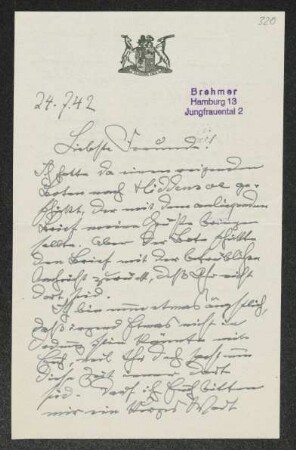 320
Brehmer
Hamburg 13
Jungfrauental 2
24.7.42
Liebste Freunde!
Ich hatte da einen reizenden
Boten nach Hiddensoe ge-
schickt, der mit dem anliegenden
Brief meine Grüsse bringen
sollte. Aber der Bote schickte
den Brief mit der betrüblichen
Nachricht zurück, dass Ihr nicht
dort seid.
Ich bin nun etwas ängstlich,
dass irgend Etwas nicht in
Ordnung sein könnte mit
Euch, weil Ihr doch sonst um
diese Zeit immer dort
seid. Darf ich Euch bitten
mir ein kurzes Wort